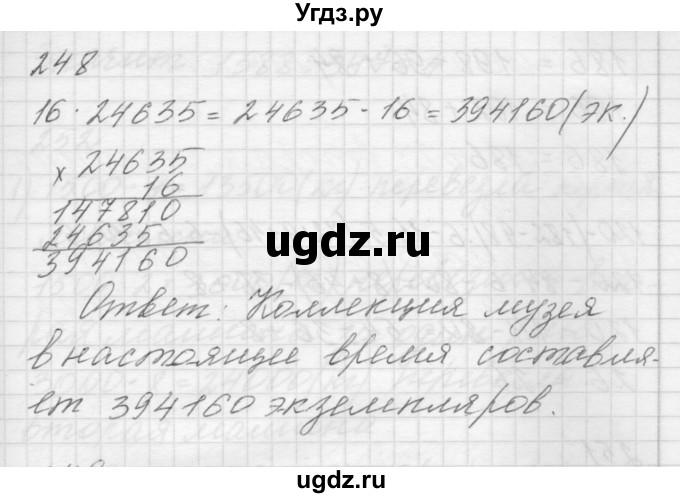 Угдз.ру
248
16 · 24635 = 24635 · 16 = 394160 (эк.)
× 24635
16
147810
24635
394160
ugdz.ru
Ответ: Коллекция музея
в настоящее время составля-
ет 394160 экземпляров.
ugdz.ru